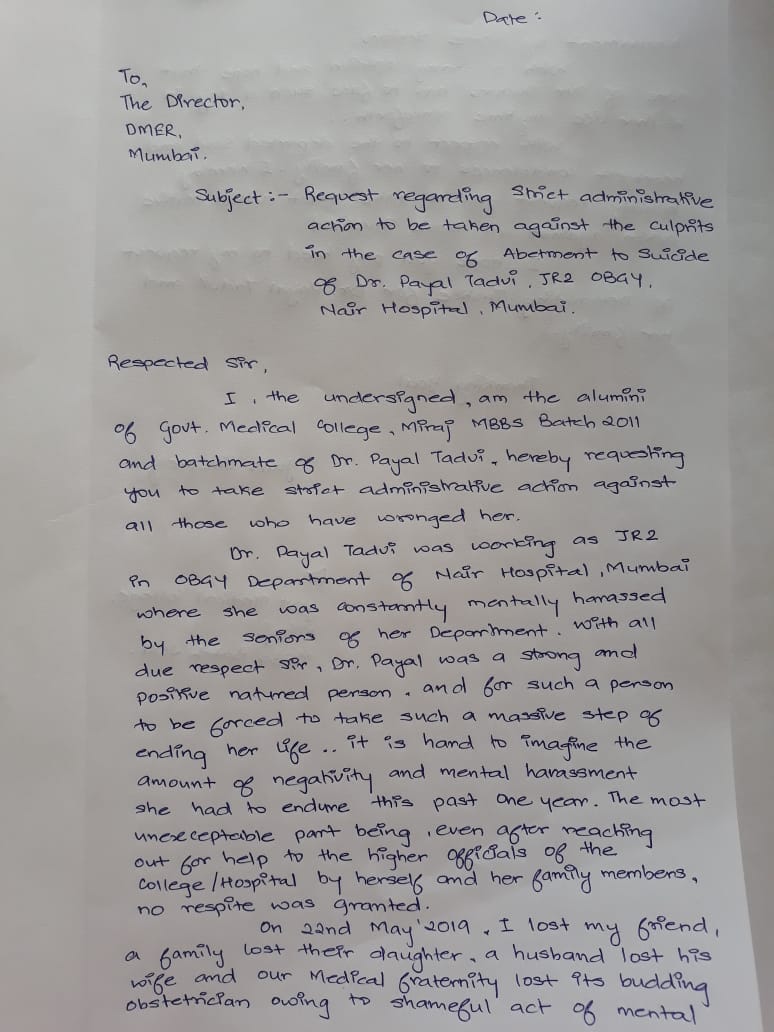 Date :
To,
The Director,
DMER,
Mumbai.
Subject :- Request regarding Strict administrative
action to be taken against the culprits
in the case of Abetment to Suicide
of Dr. Payal Tadvi, JR2 OBGY,
Nair Hospital, Mumbai.
Respected Sir,
I, the undersigned, am the alumini
of Govt. Medical College, Miraj MBBS Batch 2011
and batchmate of Dr. Payal Tadvi, hereby requesting
you to take strict administrative action against
all those who have wronged her.
Dr. Payal Tadvi was working as JR2
in OBGY Department of Nair Hospital, Mumbai
where she was constantly mentally harassed
by the seniors of her Department. With all
due respect sir, Dr. Payal was a strong and
positive natured person, and for such a person
to be forced to take such a massive step of
ending her life .. it is hard to imagine the
amount of negativity and mental harassment
she had to endure this past one year. The most
unexceptable part being, even after reaching
out for help to the higher officials of the
College/Hospital by herself and her family members,
no respite was granted.
On 22nd May'2019, I lost my friend,
a family lost their daughter, a husband lost his
wife and our Medical fraternity lost its budding
obstetrician owing to shameful act of mental